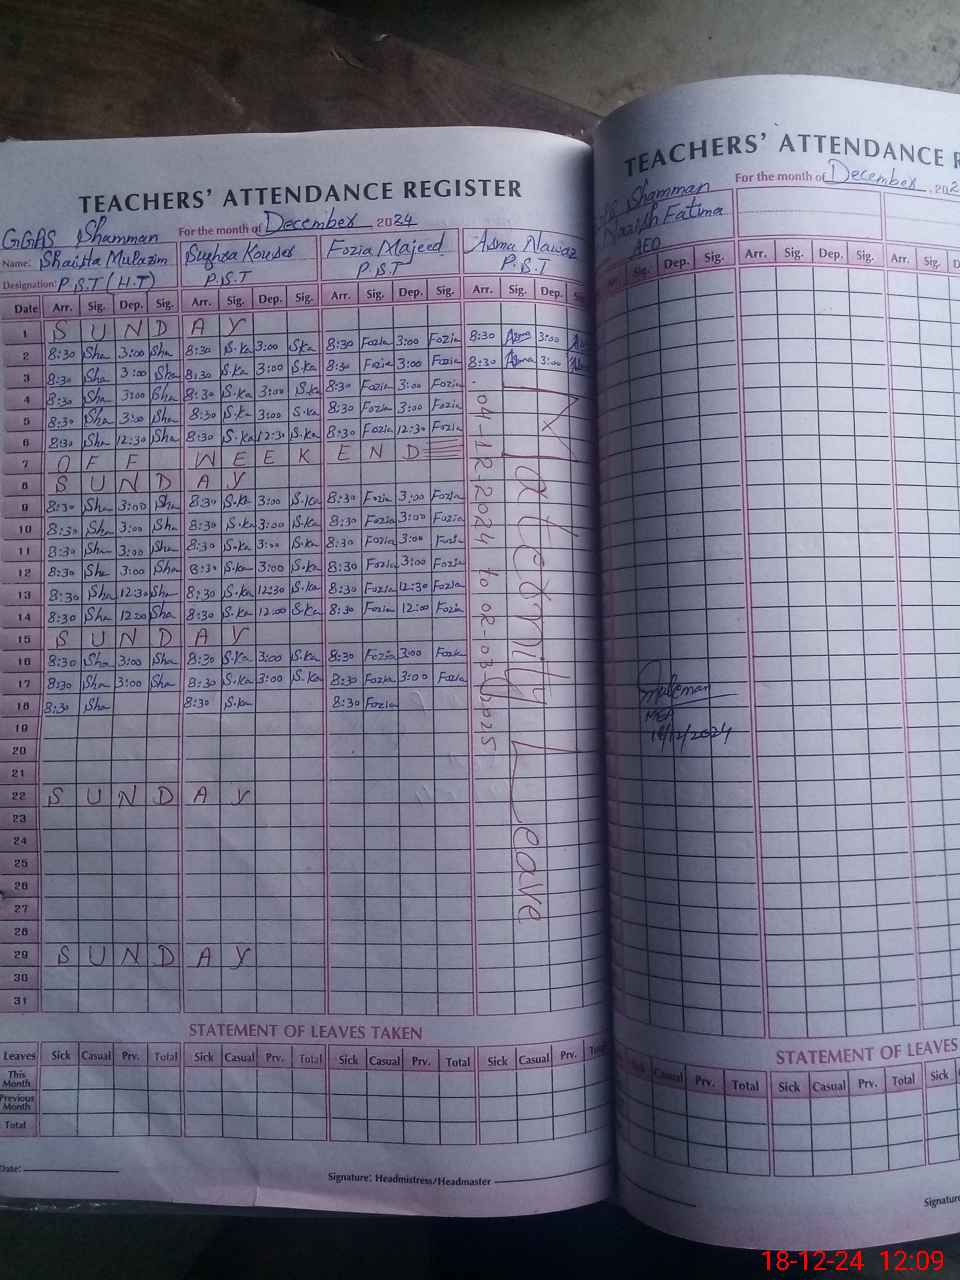 TEACHERS' ATTENDANCE REGISTER
GGAS Shamman For the month of December 2024
Name: Shaista Mulazim Sughra Kouser Fozia Majeed Asma Nawaz
Designation: P.S.T (H.T) P.S.T P.S.T P.S.T
Date Arr. Sig. Dep. Sig. Arr. Sig. Dep. Sig. Arr. Sig. Dep. Sig. Arr. Sig. Dep.
1 SUNDAY
2 8:30 Sha 3:00 Sha 8:30 S.Ka 3:00 S.Ka 8:30 Fozia 3:00 Fozia 8:30 Asma 3:00
3 8:30 Sha 3:00 Sha 8:30 S.Ka 3:00 S.Ka 8:30 Fozia 3:00 Fozia 8:30 Asma 3:00
4 8:30 Sha 3:00 Sha 8:30 S.Ka 3:00 S.Ka 8:30 Fozia 3:00 Fozia
5 8:30 Sha 3:00 Sha 8:30 S.Ka 3:00 S.Ka 8:30 Fozia 3:00 Fozia
6 8:30 Sha 12:30 Sha 8:30 S.Ka 12:30 S.Ka 8:30 Fozia 12:30 Fozia
7 OFF WEEK END
8 SUNDAY
9 8:30 Sha 3:00 Sha 8:30 S.Ka 3:00 S.Ka 8:30 Fozia 3:00 Fozia
10 8:30 Sha 3:00 Sha 8:30 S.Ka 3:00 S.Ka 8:30 Fozia 3:00 Fozia
11 8:30 Sha 3:00 Sha 8:30 S.Ka 3:00 S.Ka 8:30 Fozia 3:00 Fozia
12 8:30 Sha 3:00 Sha 8:30 S.Ka 3:00 S.Ka 8:30 Fozia 3:00 Fozia
13 8:30 Sha 12:30 Sha 8:30 S.Ka 12:30 S.Ka 8:30 Fozia 12:30 Fozia
14 8:30 Sha 12:00 Sha 8:30 S.Ka 12:00 S.Ka 8:30 Fozia 12:00 Fozia
15 SUNDAY
16 8:30 Sha 3:00 Sha 8:30 S.Ka 3:00 S.Ka 8:30 Fozia 3:00 Fozia
17 8:30 Sha 3:00 Sha 8:30 S.Ka 3:00 S.Ka 8:30 Fozia 3:00 Fozia
18 8:30 Sha 8:30 S.Ka 8:30 Fozia
19
20
21
22 SUNDAY
23
24
25
26
27
28
29 SUNDAY
30
31
Maternity Leave
04-12-2024 to 02-03-2025
STATEMENT OF LEAVES TAKEN
Leaves Sick Casual Prv. Total Sick Casual Prv. Total Sick Casual Prv. Total Sick Casual Prv.
This Month
Previous Month
Total
Date:
Signature: Headmistress/Headmaster
TEACHERS' ATTENDANCE R
For the month of December, 202
Shamman
Nazish Fatima
AEO
Sig. Dep. Sig. Arr. Sig. Dep. Sig. Arr. Sig.
MEA
18/12/2024
STATEMENT OF LEAVES
Sick Casual Prv. Total Sick Casual Prv. Total Sick
Signature
18-12-24 12:09